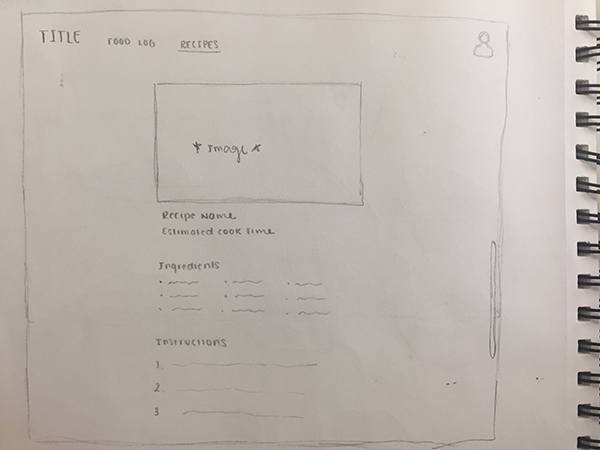 TITLE FOOD LOG RECIPES
* Image *
Recipe Name
Estimated cook time
Ingredients
Instructions
1.
2.
3